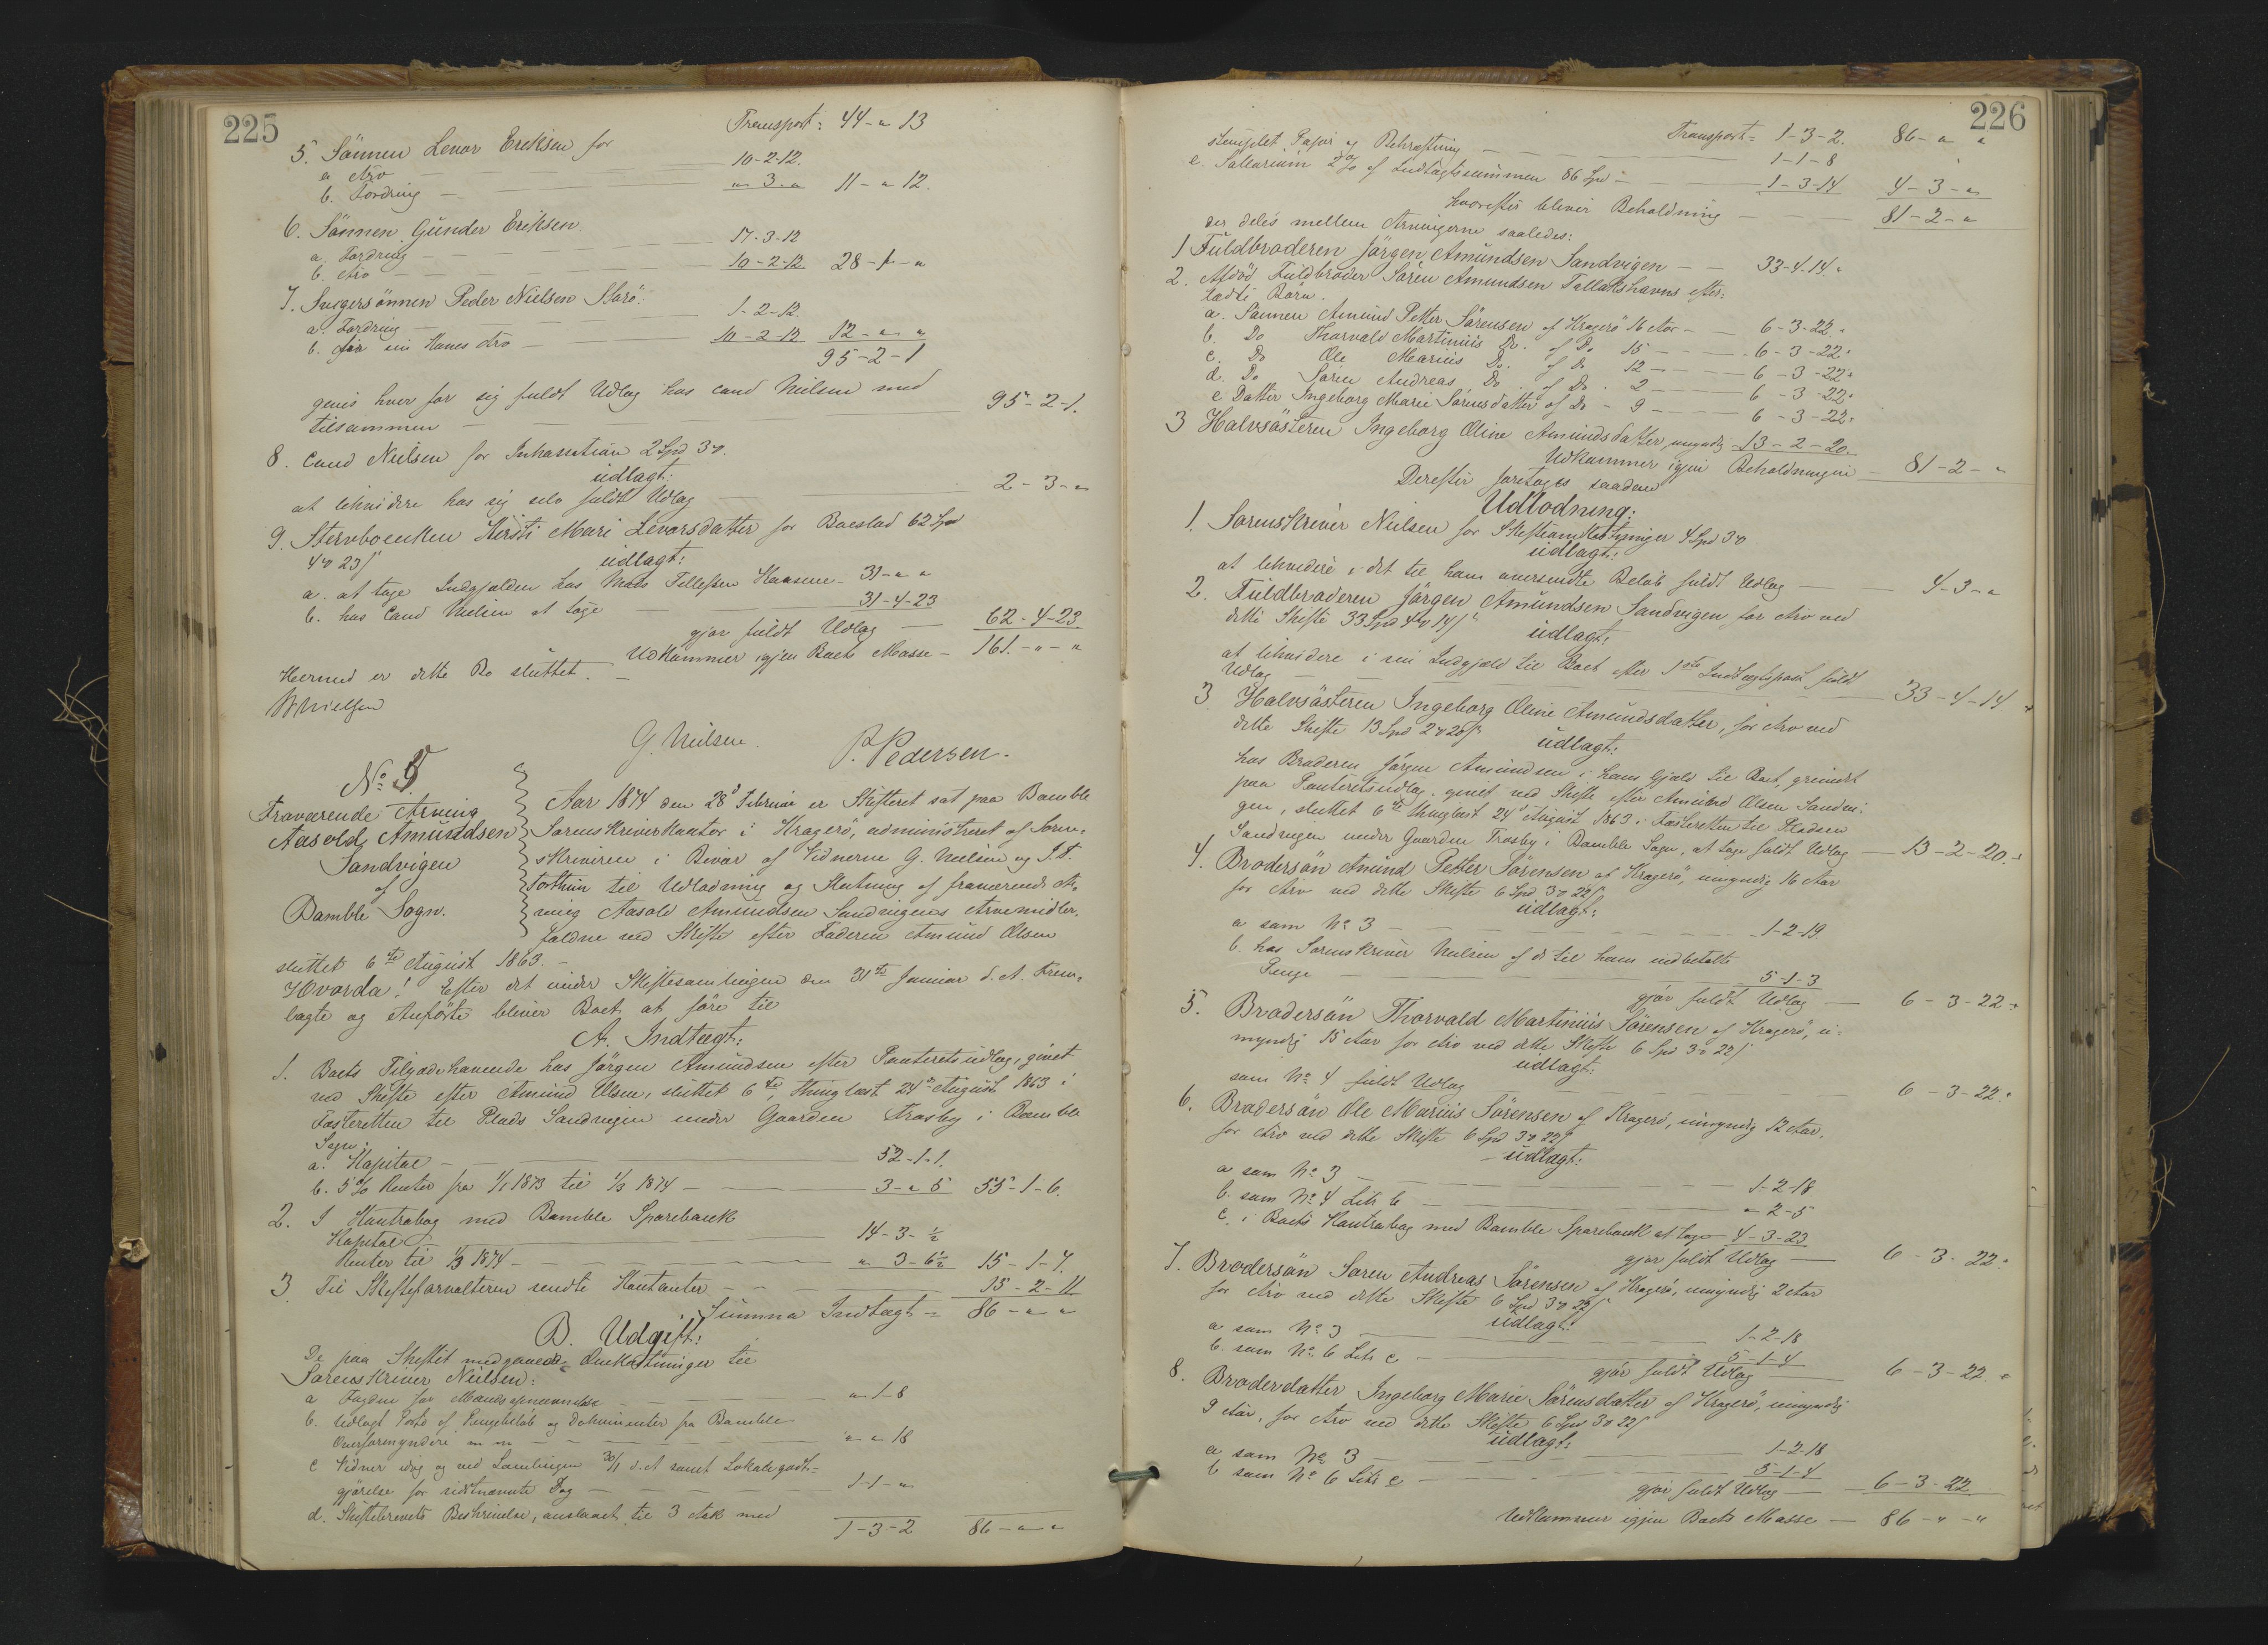 225
Transport: 44 - " 13
5. Sönnen Levor Eriksen for
a Arv — 10-2-12.
b. Fordring — " 3 - " 11 - " 12.
6. Sönnen Gunder Eriksen
a. Fordring — 17-3-12
b. Arv — 10-2-12 28-1-"
7. Svigersönnen Peder Nielsen
a. Fordring — 1-2-12.
b. for sin Kones Arv — 10-2-12 12 - " "
95-2-1
gives hver for sig fuldt Udlag hos Cand Nielsen med
tilsammen — 95-2-1.
8. Cand Nielsen for Inkassation 2 Spd 3
udlagt:
at likvidere hos sig selv fuldt Udlag — 2-3-"
9. Stervboenken Kirsti Mari Levorsdatter for Boeslod 62 Spd
4 23
udlagt:
a. at tage Indgjælden hos Mads Tellefsen — 31 - " "
b. hos Cand Nielsen at tage — 31-4-23
gjør fuldt Udlag — 62-4-23.
Udkommer igjen Boets Masse — 161. - " - "
Hermed er dette Bo sluttet. —
Nielsen
G. Nielsen. P. Pedersen.
No. 5
Fraværende Arving
Aasold Amundsen
Sandvigen
af
Bamble Sogn.
Aar 1874 den 28d Februar er Skifteret sat paa Bamble
Sorenskriverkontor i Kragerö, administreret af Soren-
skriveren i Overvær af Vidnerne G. Nielsen og
til Udlodning og Slutning af fraværende Ar-
ving Aasold Amundsen Sandvigens Arvemidler,
faldne ved Skifte efter Faderen Amund Olsen
sluttet 6te August 1863. —
Hvorda! Efter det under Skiftesamlingen den 31te Januar d. A. Frem-
lagte og Anførte bliver Boet at føre til
A. Indtægt:
1. Boets Tilgodehavende hos Jörgen Amundsen efter Panteretsudlæg, givet
ved Skifte efter Amund Olsen, sluttet 6te, thinglæst 24de August 1863 i
Fæsteretten til Plads Sandvigen under Gaarden Trosby i Bamble
Sogn:
a. Kapital — 52-1-1.
b. 5% Renter fra 1/1 1873 til 1/3 1874 — 3 - " 5 55-1-6.
2. I Kontrabog med Bamble Sparebank
Kapital — 14-3-½
Renter til 1/3 1874 — " 3-6½ 15-1-7.
3. Til Skifteforvalteren sendte Kontanter — 15-2-11
Summa Indtægt = 86 - " "
B. Udgift:
De paa Skiftet medgaaede Omkostninger til
Sorenskriver Nielsen:
a for Mandsopnævnelse — " 1-8
b. Udlagt Porto af Pengebeløb og Dokumenter fra Bamble
Overformynderi — " " 18
c Vidner idag og ved Samlingen d. A samt Lokalegodt-
gjörelse for sidstnævnte Dag — 1-1-"
d. Skiftebrevets Beskrivelse, anslaaet til 3 Ark med
1-3-2 86 - " "
226
Transport = 1-3-2. 86 - " "
stemplet Papir og Bekræftning — 1-1-8
e. Sallarium 2% af Indtægtssummen 86 Spd — 1-3-14 4-3-"
hvorefter bliver Beholdning — 81-2-"
der deles mellem Arvingerne saaledes:
1 Fuldbroderen Jörgen Amundsen Sandvigen — 33-4-14.
2. Afdöd Fuldbroder Sören Amundsen Tallakshavns efter-
ladte Börn.
a. Sönnen Amund Petter Sörensen af Kragerö 16 Aar — 6-3-22.
b. Do Thorvald Martinius Do. af Do 15 — 6-3-22.
c. Do Ole Marius Do. af Do 12 — 6-3-22.
d. Do Sören Andreas Do. af Do. 2 — 6-3-22.
e Datter Ingeborg Marie Sörensdatter af Do - 9 — 6-3-22.
3 Halvsösteren Ingeborg Oline Amundsdatter, umyndig 13-2-20.
Udkommer igjen Beholdningen — 81-2-"
Derefter foretoges saadan
Udlodning:
1. Sorenskriver Nielsen for Skifteomkostninger 4 Spd 3
udlagt:
at likvidere i det til ham oversendte Beløb fuldt Udlag — 4-3-"
2. Fuldbroderen Jörgen Amundsen Sandvigen for Arv ved
dette Skifte 33 Spd 4 14
udlagt:
at likvidere i sin Indgjæld til Boet efter 1ste Indtægtspost fuldt
Udlag — 33-4-14
3. Halvsösteren Ingeborg Oline Amundsdatter, for Arv ved
dette Skifte 13 Spd 2 20
udlagt:
hos Broderen Jörgen Amundsen i hans Gjæld til Boet, grundet
paa Panteretsudlæg, givet ved Skifte efter Amund Olsen Sandvi-
gen, sluttet 6te thinglæst 24d August 1863 i Fæsteretten til Pladsen
Sandvigen under Gaarden Trosby i Bamble Sogn, at tage fuldt Udlag — 13-2-20.
4. Brodersön Amund Petter Sörensen af Kragerö, umyndig 16 Aar
for Arv ved dette Skifte 6 Spd 3 22
udlagt:
a som No 3 — 1-2-19.
b. hos Sorenskriver Nielsen af de til ham indbetalte
Penge — 5-1-3
gjör fuldt Udlag — 6-3-22
5. Brodersön Thorvald Martinius Sörensen af Kragerö, u-
myndig 15 Aar for Arv ved dette Skifte 6 Spd 3 22
udlagt:
som No 4 fuldt Udlag — 6-3-22.
6. Brodersön Ole Marius Sörensen af Kragerö, umyndig 12 Aar,
for Arv ved dette Skifte 6 Spd 3 22
udlagt:
a som No 3 — 1-2-18
b. som No 4 Litr b — " 2-5
c. i Boets Kontrabog med Bamble Sparebank at tage 4-3-23
gjör fuldt Udlag — 6-3-22.
7. Brodersön Soren Andreas Sörensen af Kragerö, umyndig 2 Aar
for Arv ved dette Skifte 6 Spd 3 22
udlagt:
a som No 3 — 1-2-18
b. som No. 6 Litr c — 5-1-4
gjör fuldt Udlag — 6-3-22.
8. Broderdatter Ingeborg Marie Sörensdatter af Kragerö, umyndig
9 Aar, for Arv ved dette Skifte 6 Spd 3 22
udlagt:
a som No 3 — 1-2-18
b som No 6 Litr c — 5-1-4
gjör fuldt Udlag — 6-3-22
Udkommer igjen Boets Masse — 86 - " - "